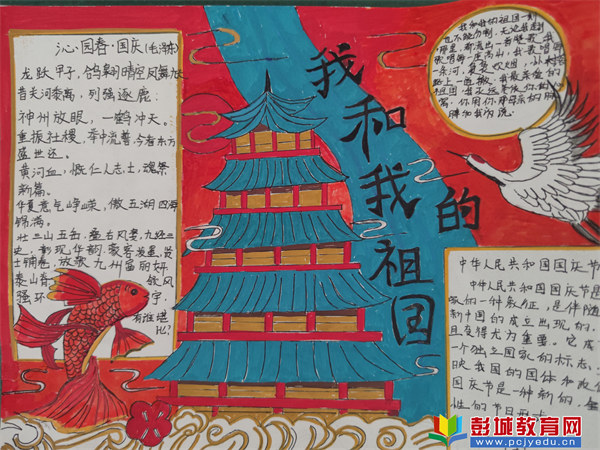 沁·园春·国庆(毛泽东)
龙跃甲子,鸽翱晴空,凤舞九
昔天河泰禹,列强逐鹿;
神州放眼,一鹤冲天。
重振社稷,举中流誓今看东方
盛世还。
黄河血,慨仁人志士,魂祭
新篇。
华夏意气峥嵘,傲五湖四海
锦涛。
壮三山五岳,
史,豪客
放歌九州
泰山春
强环宇,
有谁堪
比?
我和我的祖国
我和我的祖国一刻
也不能分割,无论我走到
哪里都流出一首赞歌,我
歌唱每一座高山,我歌唱每
一条河,袅袅炊烟,小小村
路上一道辙,我最亲爱的
祖国
窝,你用你那母亲的脉
搏和我诉说
中华人民共和国国庆节
中华人民共和国国庆节是
家的一种象征,是伴随
新中国的成立出现的,
且变得尤为重要。它成
一个独立国家的标志,
映我国的国体和政
国庆节是一种新的、
性的节日形式
彭城教育网
www.pcjyedu.cn